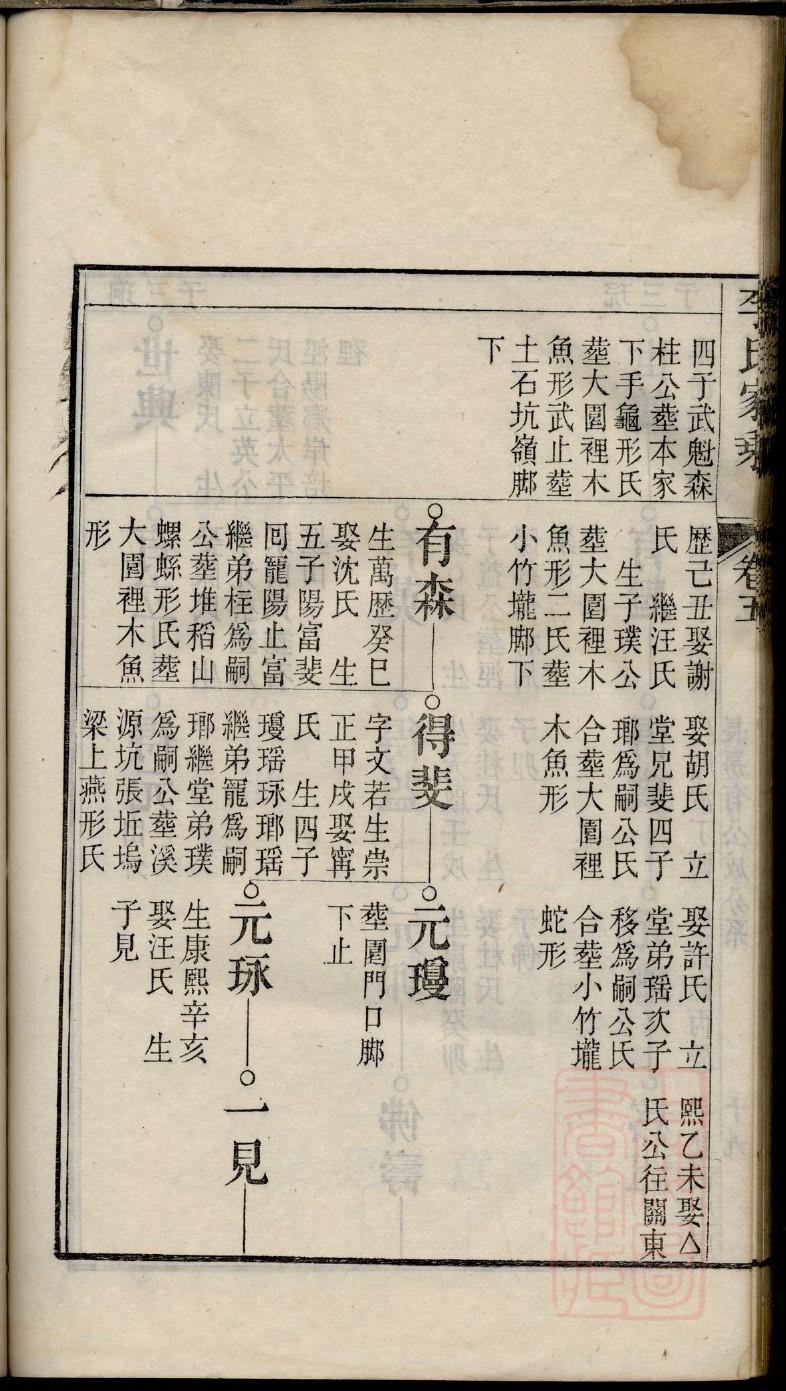 李氏家
卷五
四子武魁森
柱公塟本家
下手龜形氏
塟大圓裡木
魚形武止塟
土石坑嶺脚
下
歴己丑娶謝
氏　繼汪氏
生子璞公
塟大圓裡木
魚形二氏塟
小竹壠脚下
娶胡氏　立
堂兄斐四子
瑘爲嗣公氏
合塟大圓裡
木魚形
娶許氏　立
堂弟瑶次子
移爲嗣公氏
合塟小竹壠
蛇形
熙乙未娶△
氏公往關東
有森
生萬歴癸巳
娶沈氏　生
五子陽富斐
囘寵陽止富
繼弟柱爲嗣
公塟堆稻山
螺絲形氏塟
大圓裡木魚
形
得斐
字文若生崇
正甲戌娶甯
氏　生四子
瓊瑶琢瑘瑶
繼弟寵爲嗣
瑘繼堂弟璞
爲嗣公塟溪
源坑張坵塢
梁上燕形氏
元瓊
塟圓門口脚
下止
元琢
生康熙辛亥
娶汪氏　生
子見
一見